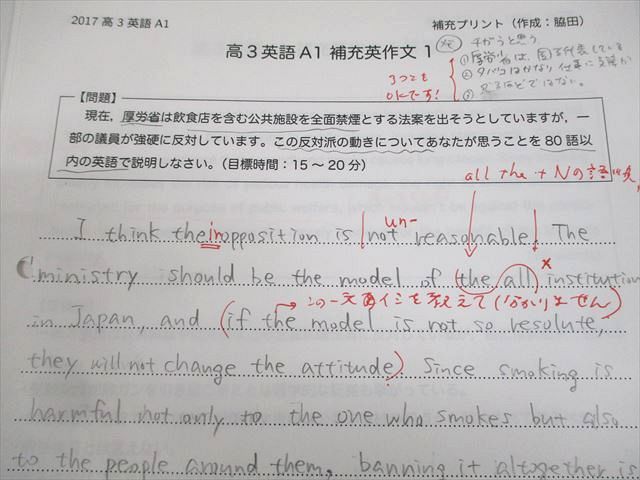 2017 高3英語A1
補充プリント（作成：脇田）
高3英語A1 補充英作文 1
ちがうと思う
①厚労省は、国を代表している
②タバコはかなり仕事に支障が
③
3つとも
OKです！
【問題】
現在，厚労省は飲食店を含む公共施設を全面禁煙とする法案を出そうとしていますが，一
部の議員が強硬に反対しています。この反対派の動きについてあなたが思うことを80語以
内の英語で説明しなさい。（目標時間：15～20分）
all the + Nの語順
un-
I think their opposition is not reasonable. The
ministry should be the model of the all institution
この一文
in Japan, and (if the model is not so resolute,
they will not change the attitude). Since smoking is
harmful not only to the one who smokes but also
to the people around them, banning it altogether is